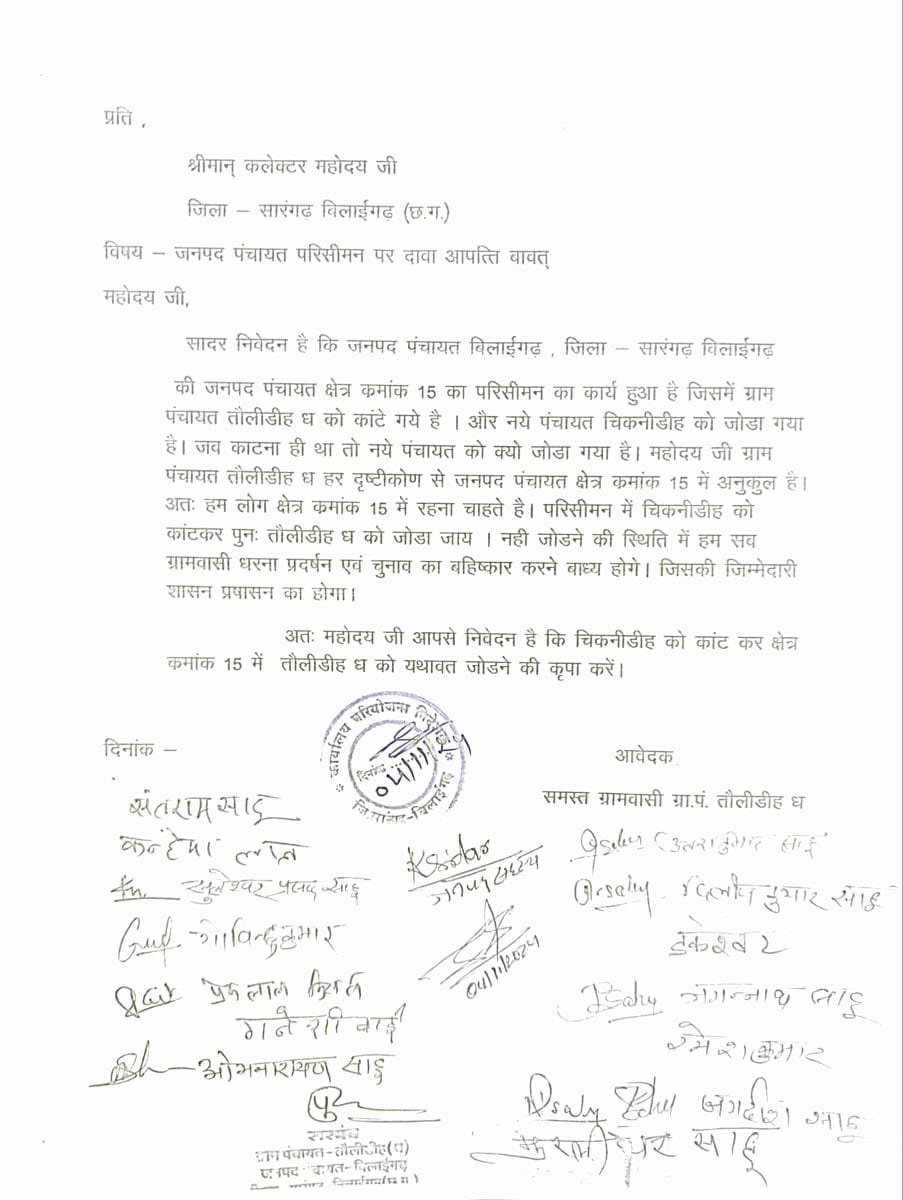 प्रति ,
श्रीमान् कलेक्टर महोदय जी
जिला – सारंगढ़ विलाईगढ़ (छ.ग.)
विषय – जनपद पंचायत परिसीमन पर दावा आपत्ति बावत्
महोदय जी,
सादर निवेदन है कि जनपद पंचायत बिलाईगढ़ , जिला – सारंगढ़ विलाईगढ़
की जनपद पंचायत क्षेत्र कमांक 15 का परिसीमन का कार्य हुआ है जिसमें ग्राम
पंचायत तौलीडीह ध को कांटे गये है । और नये पंचायत चिकनीडीह को जोडा गया
है। जव काटना ही था तो नये पंचायत को क्यो जोडा गया है। महोदय जी ग्राम
पंचायत तौलीडीह ध हर दृष्टीकोण से जनपद पंचायत क्षेत्र कमांक 15 में अनुकुल है।
अतः हम लोग क्षेत्र कमांक 15 में रहना चाहते है। परिसीमन में चिकनीडीह को
कांटकर पुनः तौलीडीह ध को जोडा जाय । नही जोडने की स्थिति में हम सव
ग्रामवासी धरना प्रदर्षन एवं चुनाव का बहिष्कार करने बाध्य होगे। जिसकी जिम्मेदारी
शासन प्रषासन का होगा।
अतः महोदय जी आपसे निवेदन है कि चिकनीडीह को कांट कर क्षेत्र
कमांक 15 में तौलीडीह ध को यथावत जोडने की कृपा करें।
कार्यालय परियोजना
दिनांक 04/11/24
जि.सारंगढ़-विलाईगढ़
दिनांक –
आवेदक
समस्त ग्रामवासी ग्रा.पं. तौलीडीह ध
संतराम साहू
कन्हैया लाल
जनपद सदस्य
उत्तरा कुमार साहू
साहू
दिलीप कुमार साहू
गोविन्द कुमार
डकेश्वर
04/11/2024
जगन्नाथ साहू
गनेशी बाई
रमेश कुमार
ओमनारायण साहू
जगदीश साहू
साहू
सरपंच
ग्राम पंचायत-तौलीडीह(ध)
जनपद पंचायत-विलाईगढ़